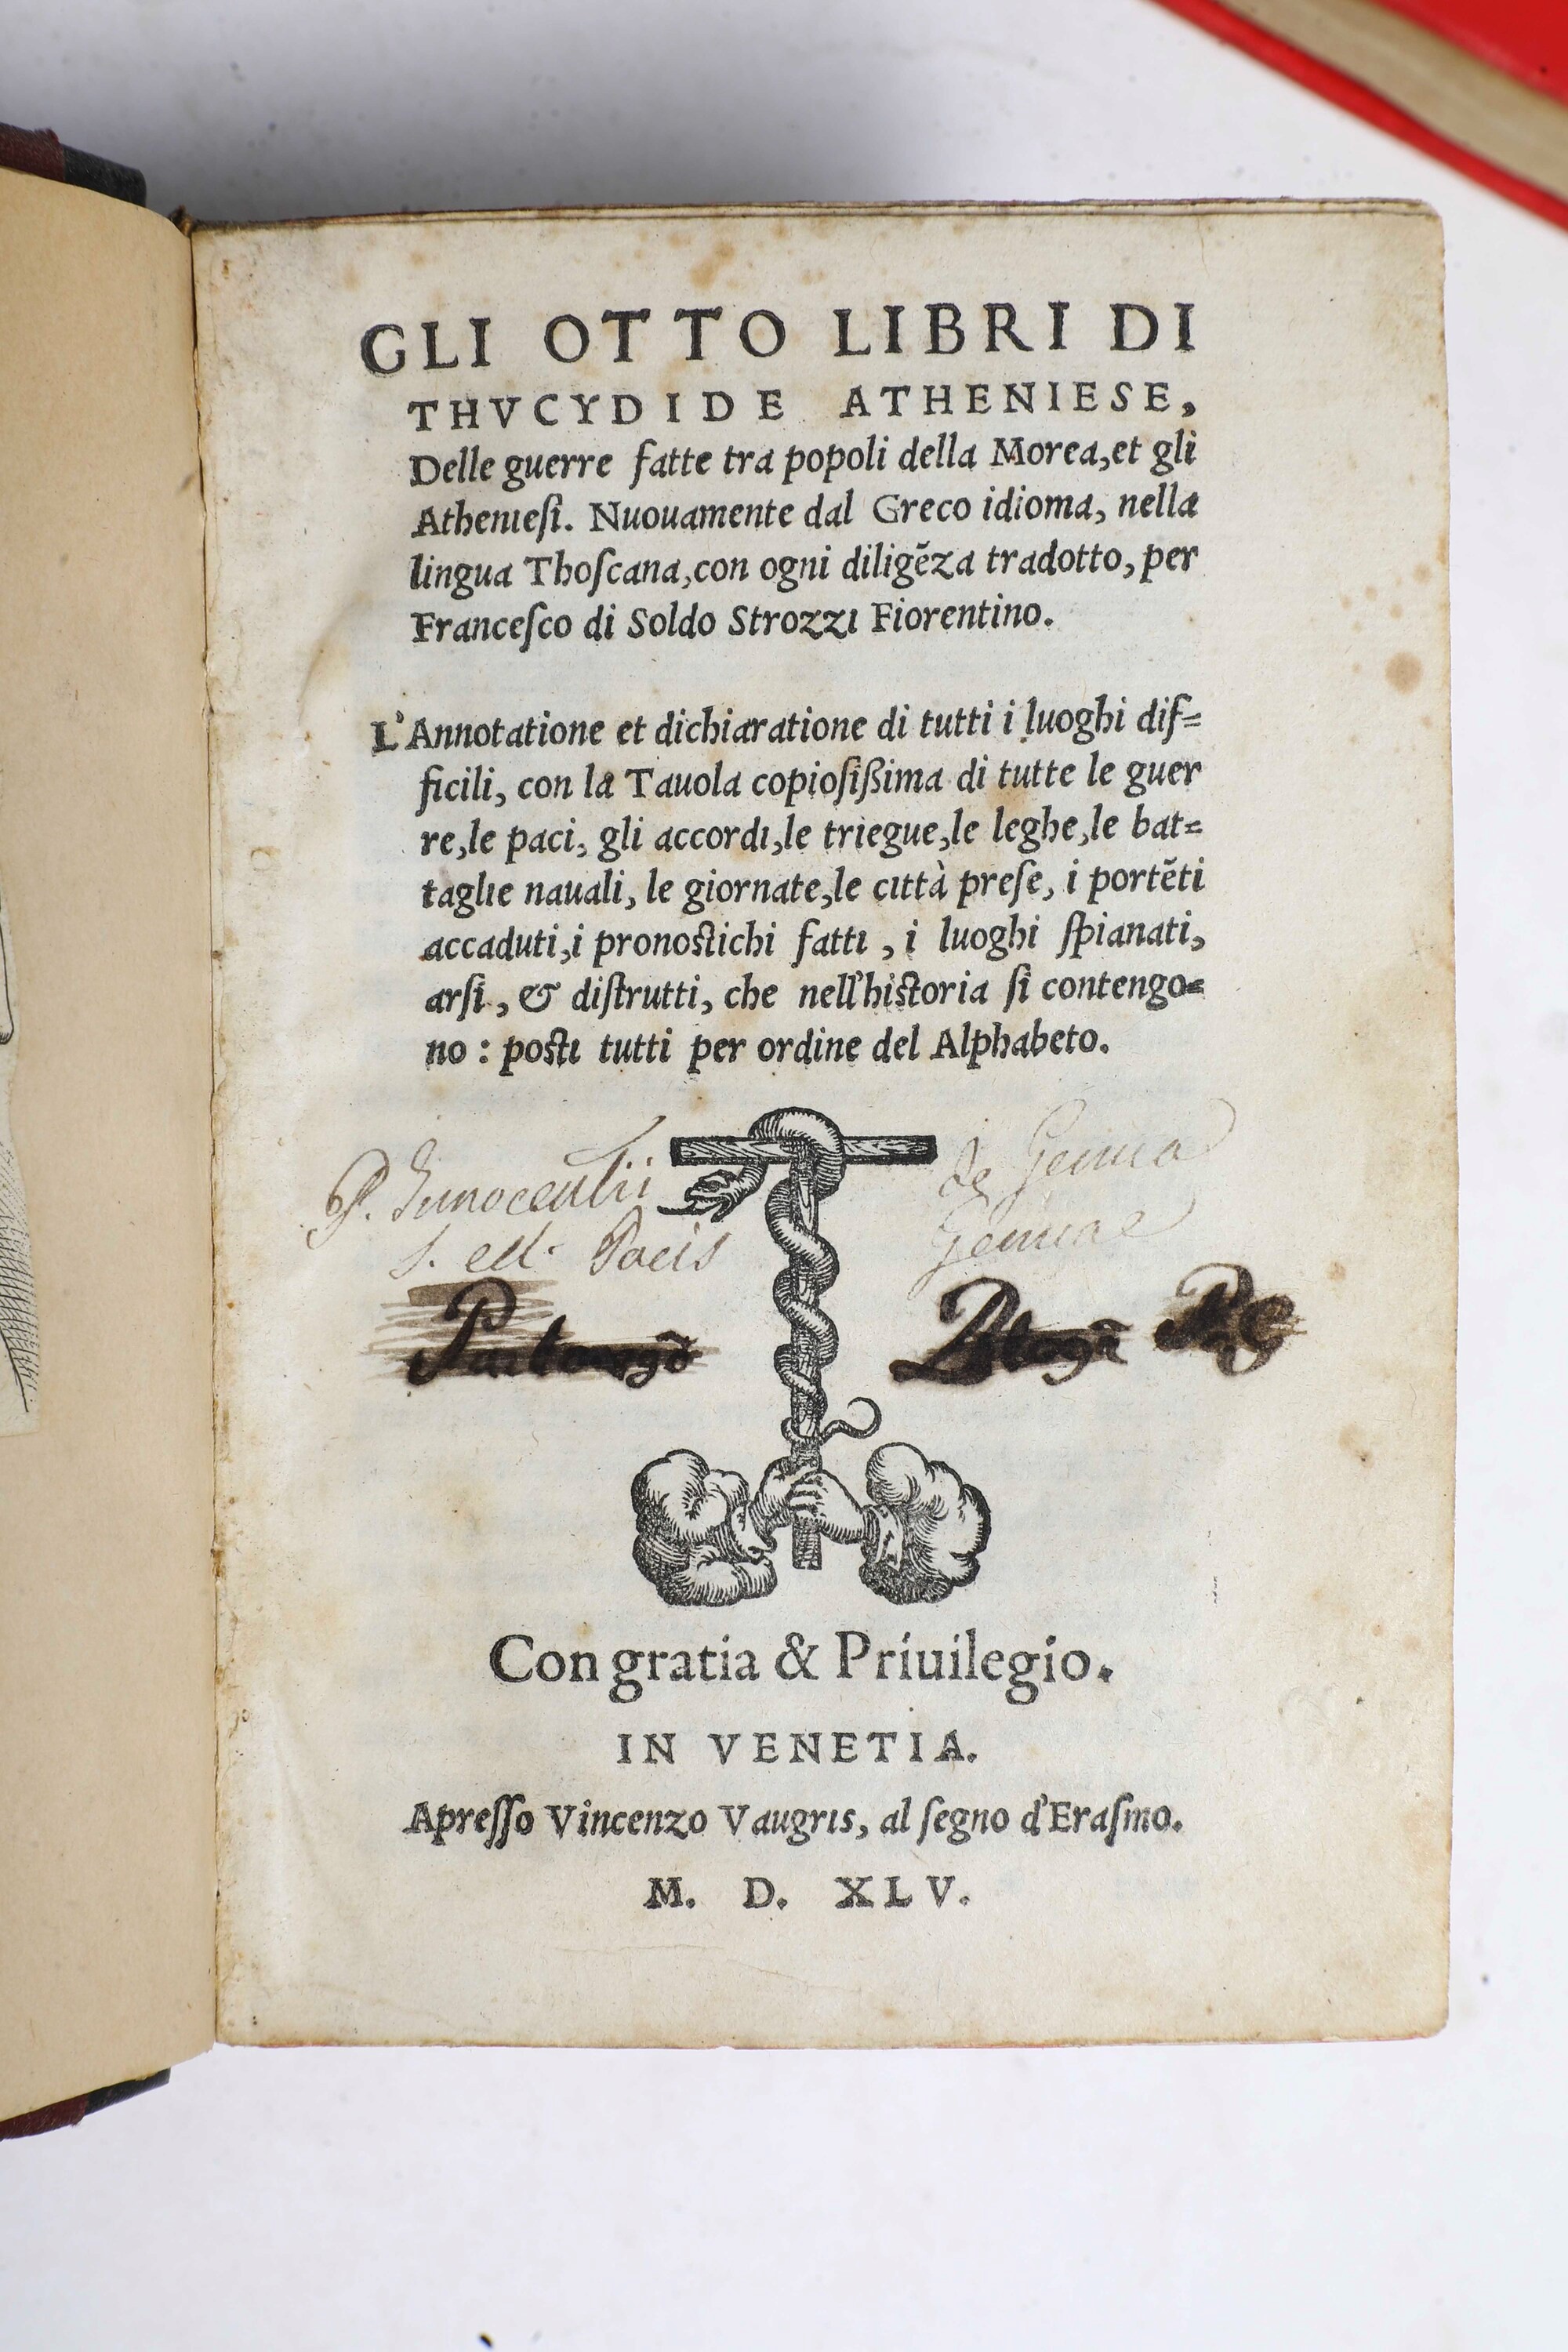 GLI OTTO LIBRI DI
THVCYDIDE ATHENIESE,
Delle guerre fatte tra popoli della Morea,et gli
Atheniesi. Nuouamente dal Greco idioma, nella
lingua Thoscana,con ogni diligẽza tradotto, per
Francesco di Soldo Strozzi Fiorentino.
L'Annotatione et dichiaratione di tutti i luoghi dif=
ficili, con la Tauola copiosißima di tutte le guer
re,le paci, gli accordi,le triegue,le leghe,le bat=
taglie nauali, le giornate,le città prese, i portẽti
accaduti,i pronostichi fatti , i luoghi spianati,
arsi , & distrutti, che nell'historia si contengo=
no : posti tutti per ordine del Alphabeto.
P. Innocentii de Genua
Genuae
Con gratia & Priuilegio.
IN VENETIA.
Apresso Vincenzo Vaugris, al segno d'Erasmo.
M. D. XLV.